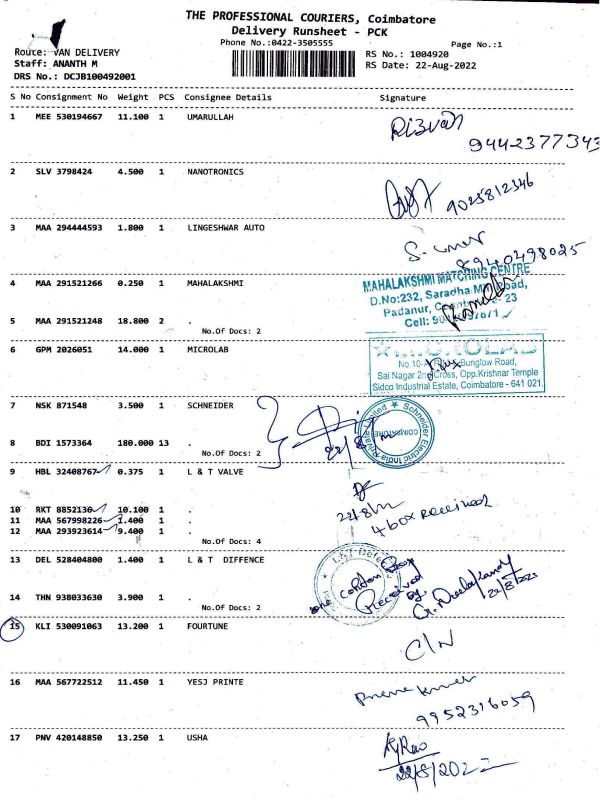 THE PROFESSIONAL COURIERS, Coimbatore
Delivery Runsheet - PCK
Phone No.:0422-3505555
Page No.:1
Route: VAN DELIVERY
RS No.: 1004920
Staff: ANANTH M
RS Date: 22-Aug-2022
DRS No.: DCJB100492001
S No Consignment No Weight PCS Consignee Details Signature
1 MEE 530194667 11.100 1 UMARULLAH
Rizvan
9442377343
2 SLV 3798424 4.500 1 NANOTRONICS
9025812346
3 MAA 294444593 1.800 1 LINGESHWAR AUTO
8940498025
4 MAA 291521266 0.250 1 MAHALAKSHMI
MAHALAKSHMI MATCHING CENTRE
D.No:232, Saradha Mill Road,
Padanur, 23
Cell:
5 MAA 291521248 18.800 2 .
No.Of Docs: 2
6 GPM 2026051 14.000 1 MICROLAB
Bunglow Road,
Sai Nagar 2nd Cross, Opp.Krishnar Temple
Sidco Industrial Estate, Coimbatore - 641 021.
7 NSK 871548 3.500 1 SCHNEIDER
Schneider Electric India Private Limited
COIMBATORE
22/8/22
8 BDI 1573364 180.000 13 .
No.Of Docs: 2
9 HBL 32408767 0.375 1 L & T VALVE
22/8/22
4 box Received
10 RKT 8852130 10.100 1 .
11 MAA 567998226 1.400 1 .
12 MAA 293923614 9.400 1 .
No.Of Docs: 4
13 DEL 528404800 1.400 1 L & T DIFFENCE
L&T Defence
one Box
Received
by.
22/8/2022
14 THN 938033630 3.900 1 .
No.Of Docs: 2
15 KLI 530091063 13.200 1 FOURTUNE
C/N
16 MAA 567722512 11.450 1 YESJ PRINTE
9952316059
17 PNV 420148850 13.250 1 USHA
22/8/2022